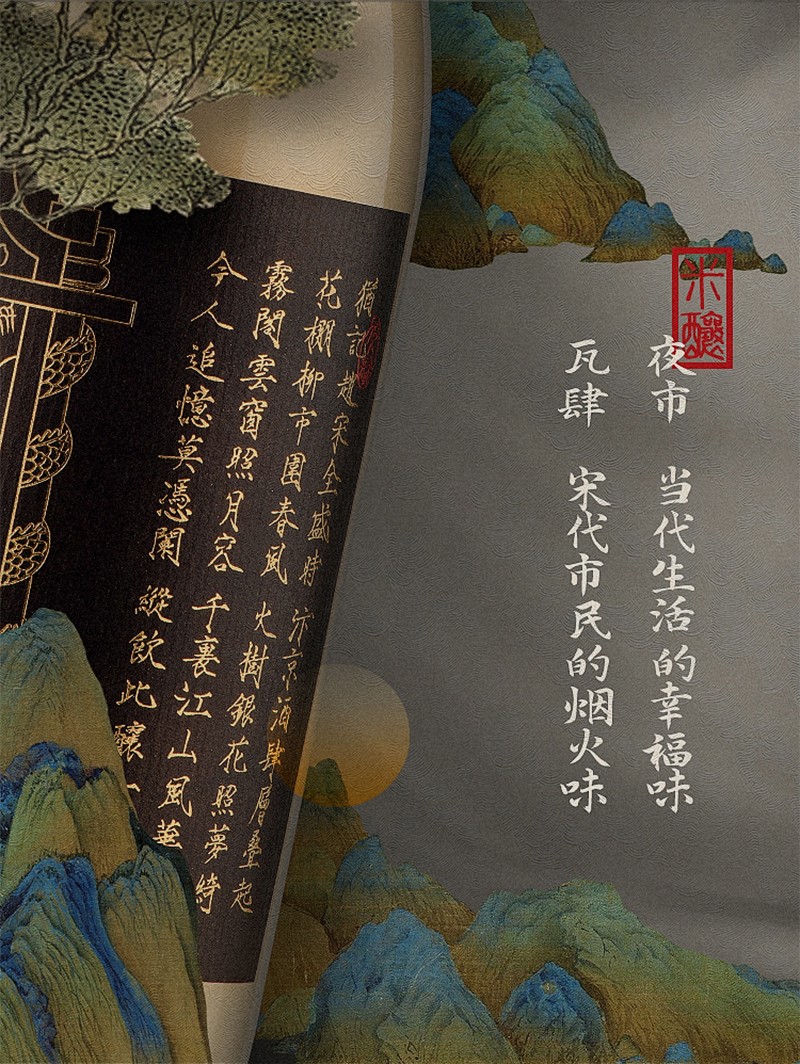 米釀
夜市 当代生活的幸福味
瓦肆 宋代市民的烟火味
猶記趙宋全盛時 汴京酒肆層叠起
花棚柳市圍春風 火樹銀花照夢綺
霧閣雲窗照月容 千裏江山風華
令人追憶莫憑闌 縱飲此釀一